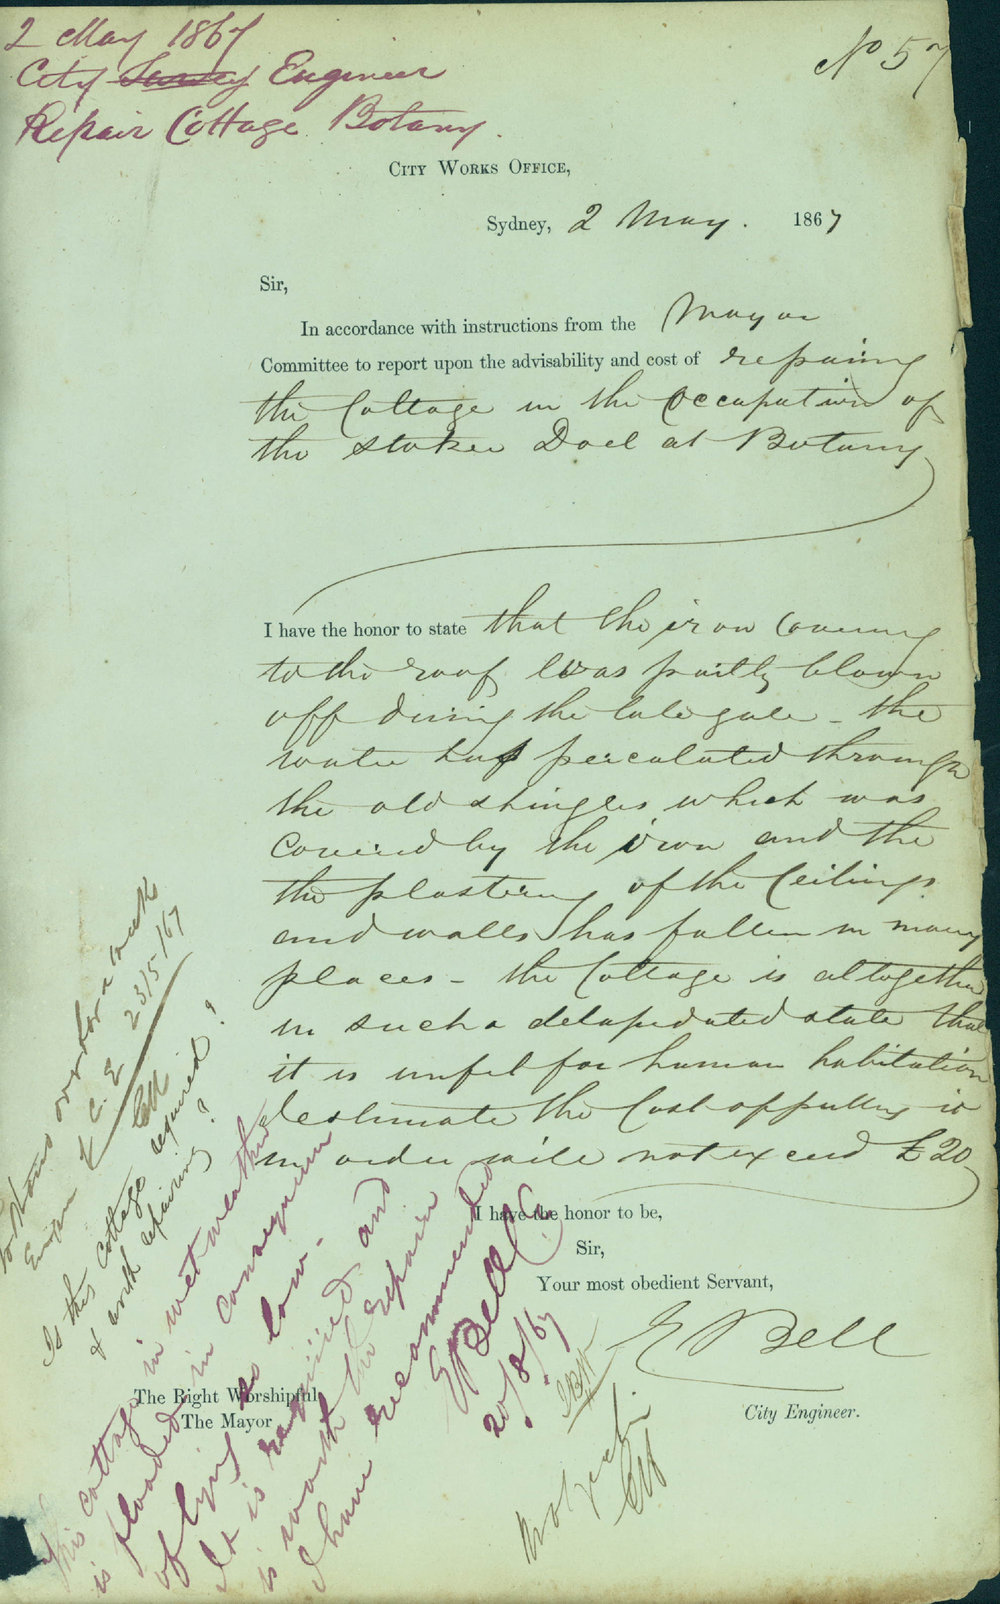 2 May 1867
City Survey Engineer
Repair Cottage Botany.
No 57
CITY WORKS OFFICE,
Sydney, 2 May. 1867
Sir,
In accordance with instructions from the Mayor
Committee to report upon the advisability and cost of repairing
the Cottage in the Occupation of
the stoker Doel at Botany
I have the honor to state that the iron covering
to the roof was partly blown
off during the late gale - the
water has percolated through
the old shingles which was
covered by the iron and the
the plastering of the Ceilings
and walls has fallen in many
places - the Cottage is altogether
in such a delapidated state that
it is unfit for human habitation
I estimate the Cost of putting it
in order will not exceed £20
I have the honor to be,
Sir,
Your most obedient Servant,
E Bell
City Engineer.
The Right Worshipful
The Mayor
over for a week
C. E 23/5/67
Is this Cottage required?
& worth repairing?
This cottage in wet weather
is flooded in consequence
of lying so low -
It is required and
is worth the repair
I have recommended
E Bell CE
20/8/67
Not yet